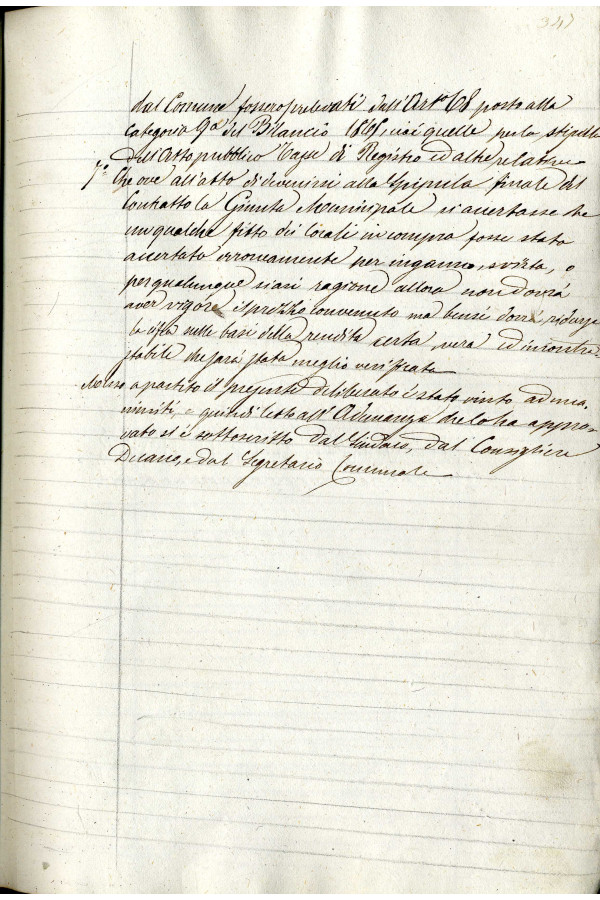 347
dal Comune fossero prelevati dall'Arto 68 posto alla
Categoria 9a del Bilancio 1868, cioè quelle per la stipula
dell'Atto pubblico Tasse di Registro ed altre relative
7.o Che ove all'atto di devenirsi alla Stipula finale del
Contratto la Giunta Municipale si accertasse che
un qualche fitto dei locali in compra fosse stato
accertato erroneamente per inganno, svista, o
per qualunque siasi ragione allora non dovrà
aver vigore il prezzo convenuto ma bensì dovrà ridursi
la cifra sulle basi della rendita certa, vera ed incontra
stabile che sarà stata meglio verificata
Messo a partito il presente deliberato è stato vinto ad una
nimità, e quindi letto all'Adunanza che lo ha appro-
vato si è sottoscritto dal Sindaco, dal Consigliere
Decano, e dal Segretario Comunale